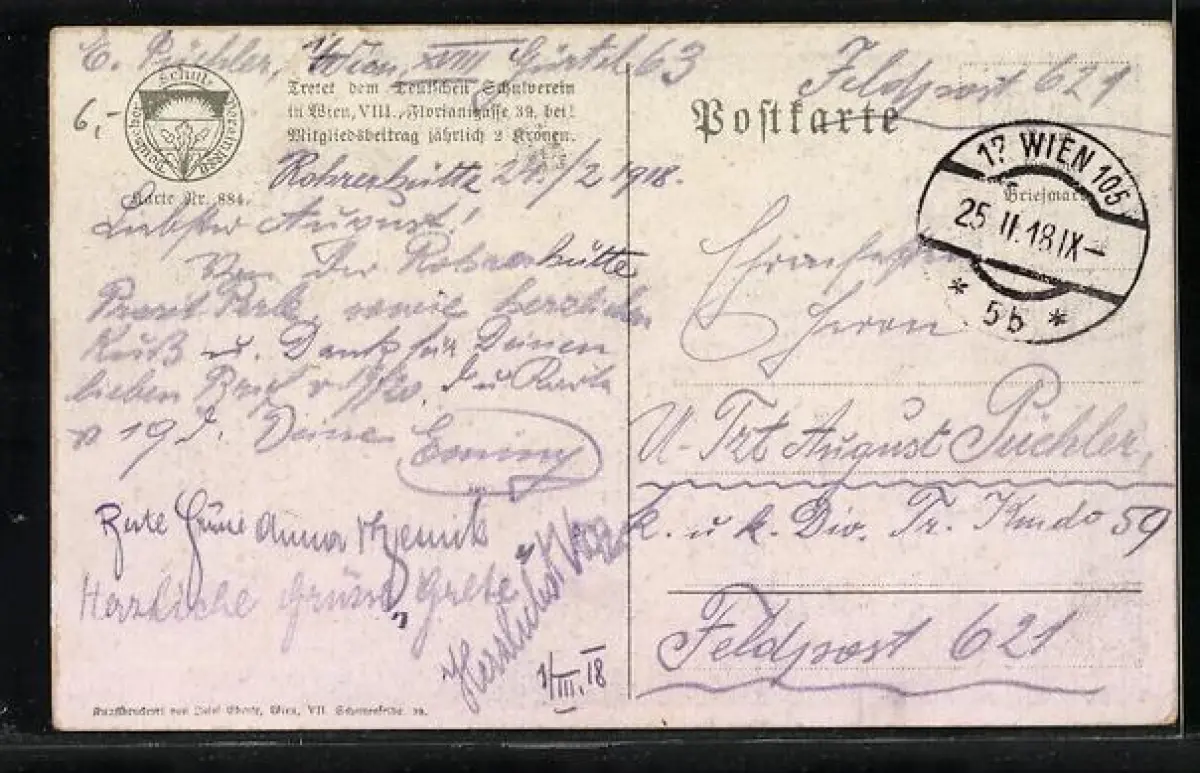 E. Püchler, Wien, XVIII Gürtel 63
Feldpost 621
6,-
Deutscher Schul-Verein
Tretet dem Deutschen Schulverein
in Wien, VIII., Florianigasse 39, bei!
Mitgliedsbeitrag jährlich 2 Kronen.
Karte Nr. 884.
Postkarte
Briefmarke
17 WIEN 105
25 II. 18 IX-
* 5b *
Rohrerhütte 24./2 1918.
Liebster August!
Von der Rohrerhütte
Prosit, sowie herzlichen
Kuß u. Dank für Deinen
lieben Brief v. u. Karte
v 19 d. Deine
Herrn
U-Tzt August Püchler,
k. u. k. Div. Tr. Kmdo 59
Feldpost 621
Anna
Herzliche Grüsse Grete
Herzlichst
1/III. 18
Kunstdruckerei von Josef Eberle, Wien, VII.